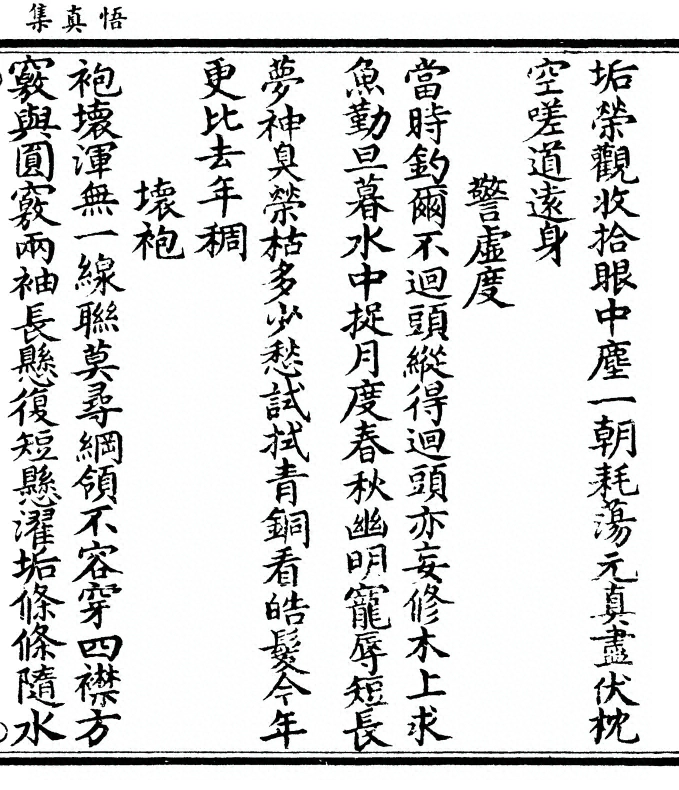 悟真集
垢榮觀收拾眼中塵一朝耗蕩元真盡伏枕
空嗟道遠身
警虛度
當時釣爾不迴頭縱得迴頭亦妄修木上求
魚勤旦暮水中捉月度春秋幽明寵辱短長
夢神臭榮枯多少愁試拭青銅看皓髮今年
更比去年稠
壞袍
袍壞渾無一線聯莫尋綱領不容穿四襟方
竅與圓竅兩袖長懸復短懸濯垢條條隨水